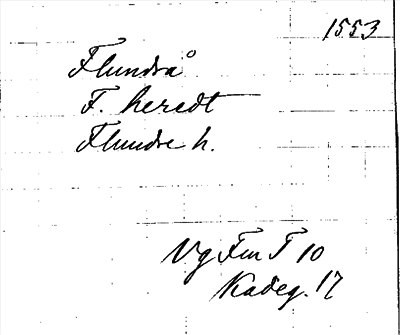 1553
Flundrå
F. heredt
Flundre h.
Vg Fm T 10
Kadeg. 17